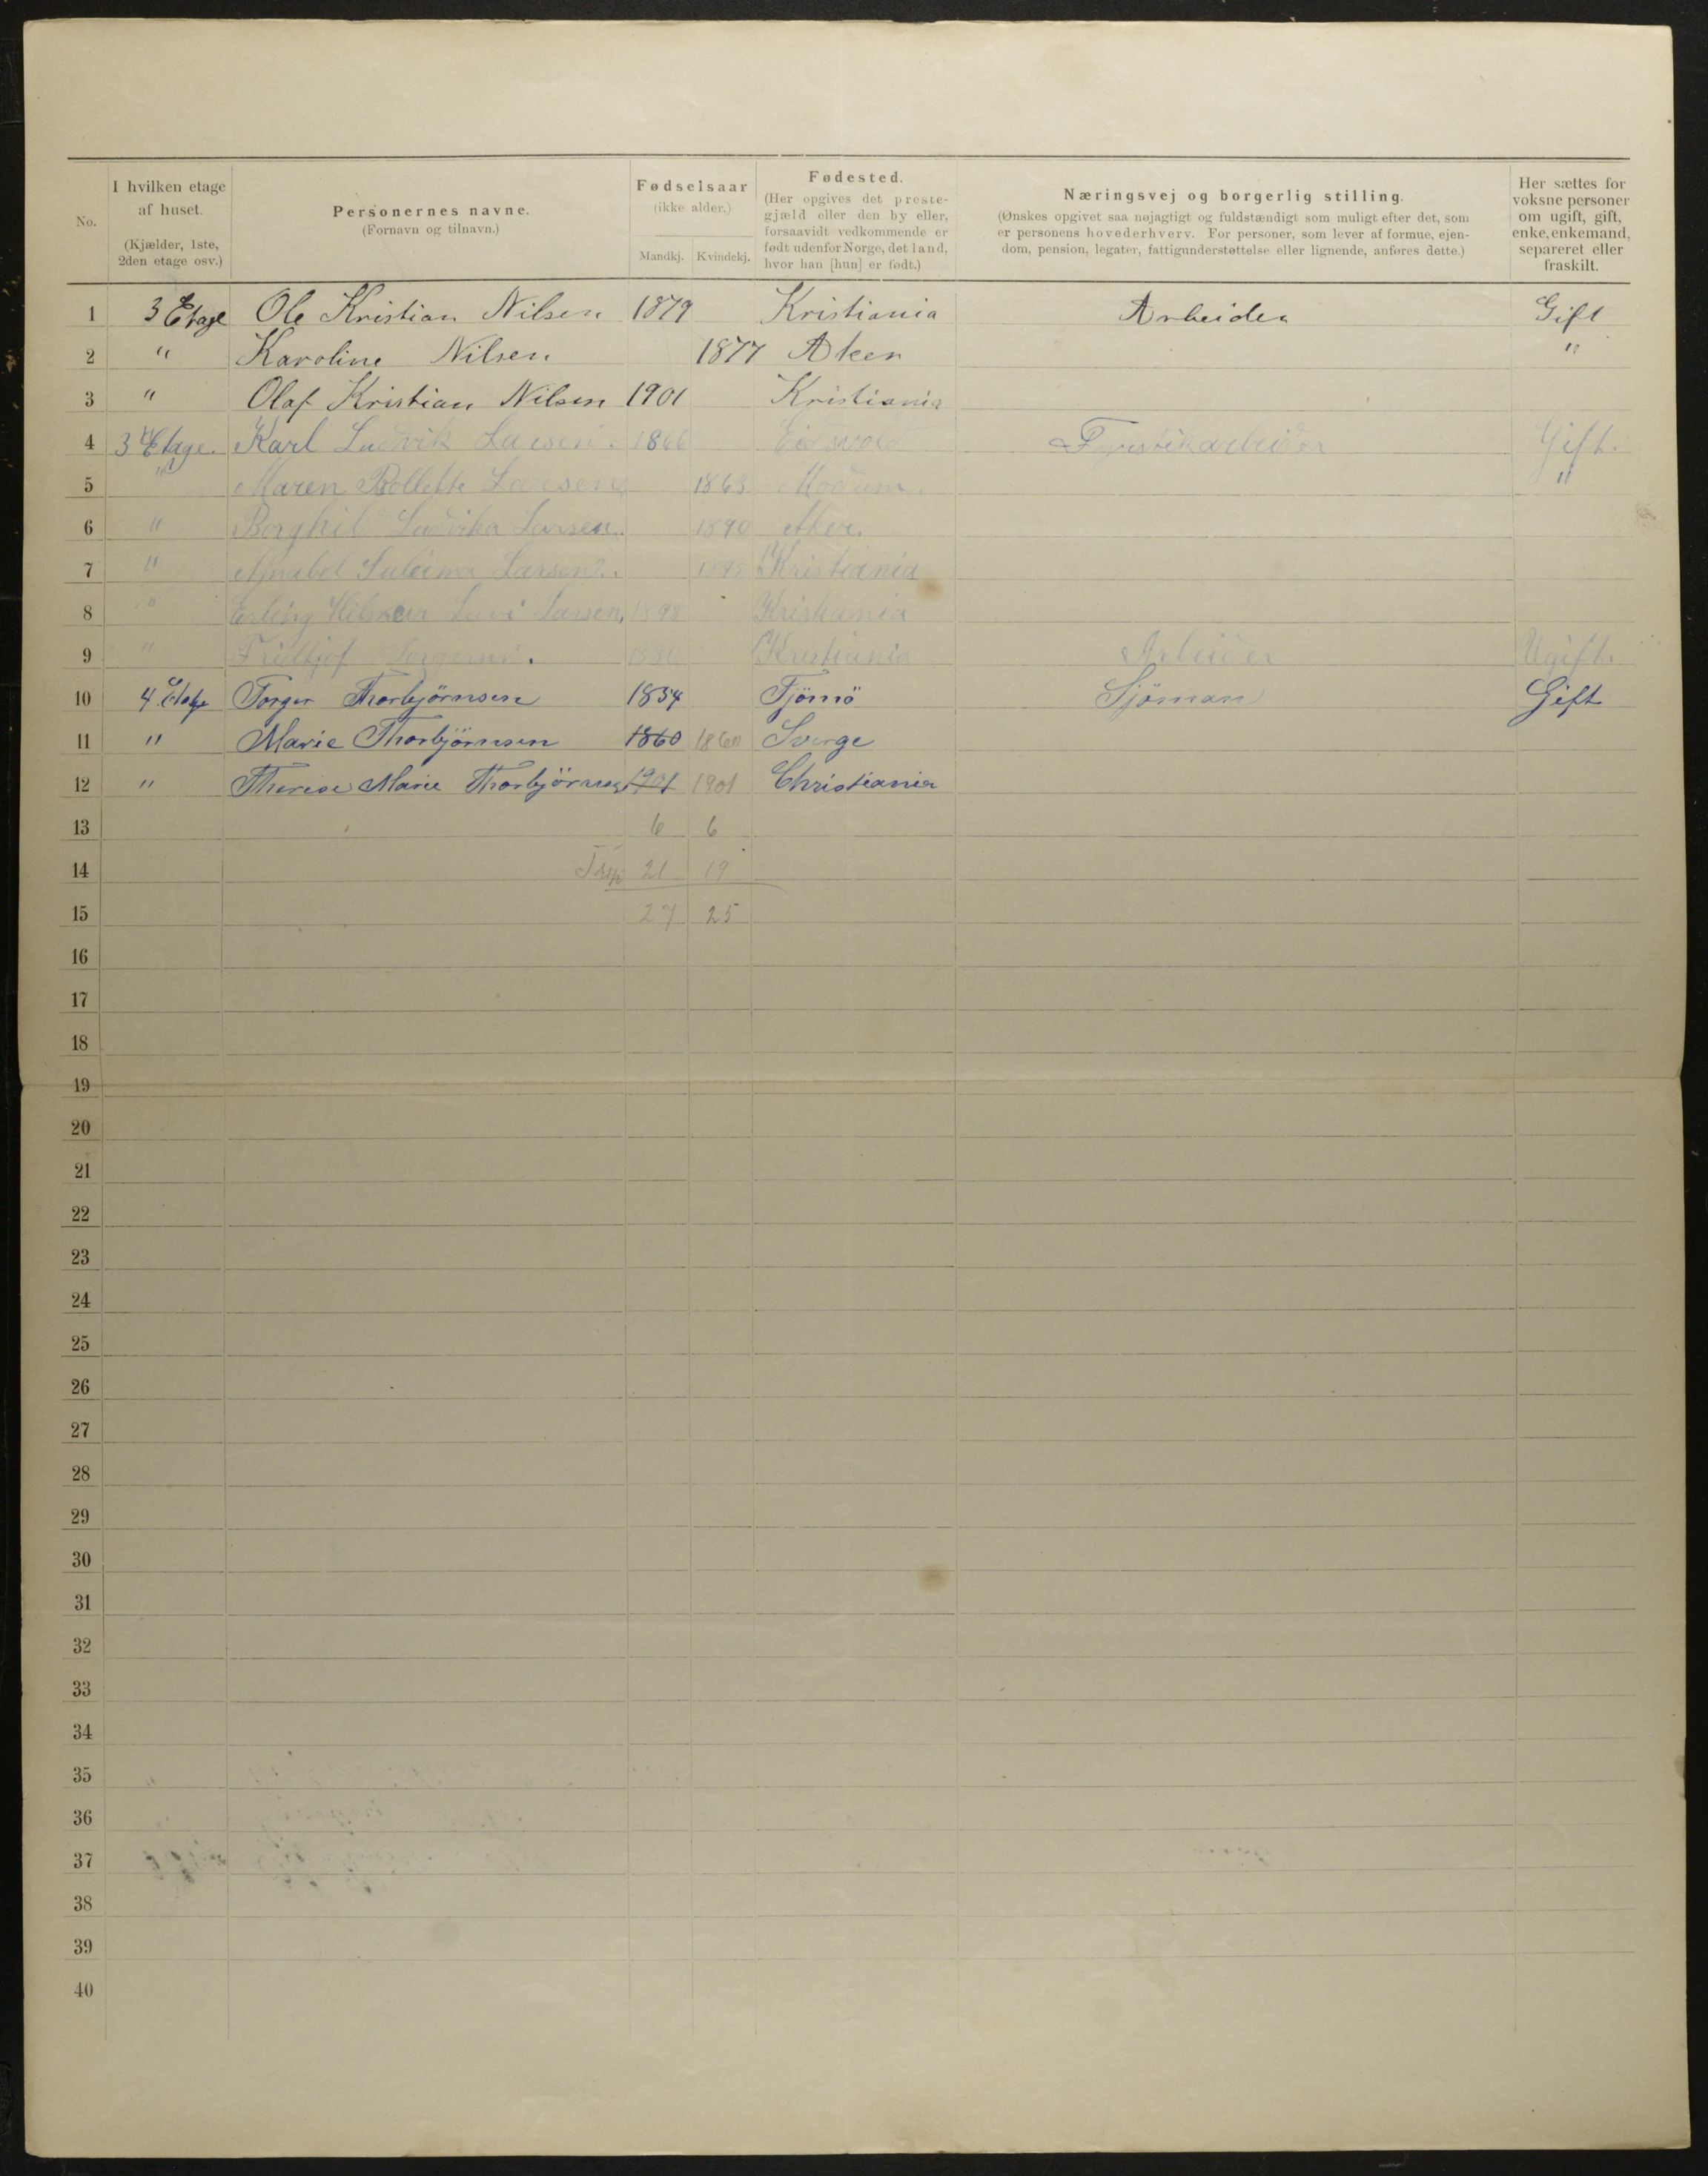 No.
I hvilken etage af huset. (Kjælder, 1ste, 2den etage osv.)
Personernes navne. (Fornavn og tilnavn.)
Fødselsaar (ikke alder.) Mandkj. Kvindekj.
Fødested. (Her opgives det prestegjæld eller den by eller, forsaavidt vedkommende er født udenfor Norge, det land, hvor han [hun] er født.)
Næringsvej og borgerlig stilling. (Ønskes opgivet saa nøjagtigt og fuldstændigt som muligt efter det, som er personens hovederhverv. For personer, som lever af formue, ejendom, pension, legater, fattigunderstøttelse eller lignende, anføres dette.)
Her sættes for voksne personer om ugift, gift, enke, enkemand, separeret eller fraskilt.
1 3 Etage Ole Kristian Nilsen 1879 Kristiania Arbeider Gift
2 " Karoline Nilsen 1877 Aker "
3 " Olaf Kristian Nilsen 1901 Kristiania
4 3 Etage. Karl Ludvik Larsen. 1866 Eidsvol Gift.
5 " Maren Larsen 1863 Modum. "
6 " Borghil Ludvika Larsen. 1890 Aker.
7 " Larsen. Kristiania
8 " Erling Larsen, 1898 Kristiania
9 " Kristiania Arbeider Ugift.
10 4 Etage Torger Thorbjörnsen 1854 Tjömö Sjöman Gift
11 " Marie Thorbjörnsen 1860 1860 Sverge
12 " Therese Marie Thorbjörnsen 1901 1901 Christiania
13 6 6
14 21 19
15 27 25
16
17
18
19
20
21
22
23
24
25
26
27
28
29
30
31
32
33
34
35
36
37
38
39
40